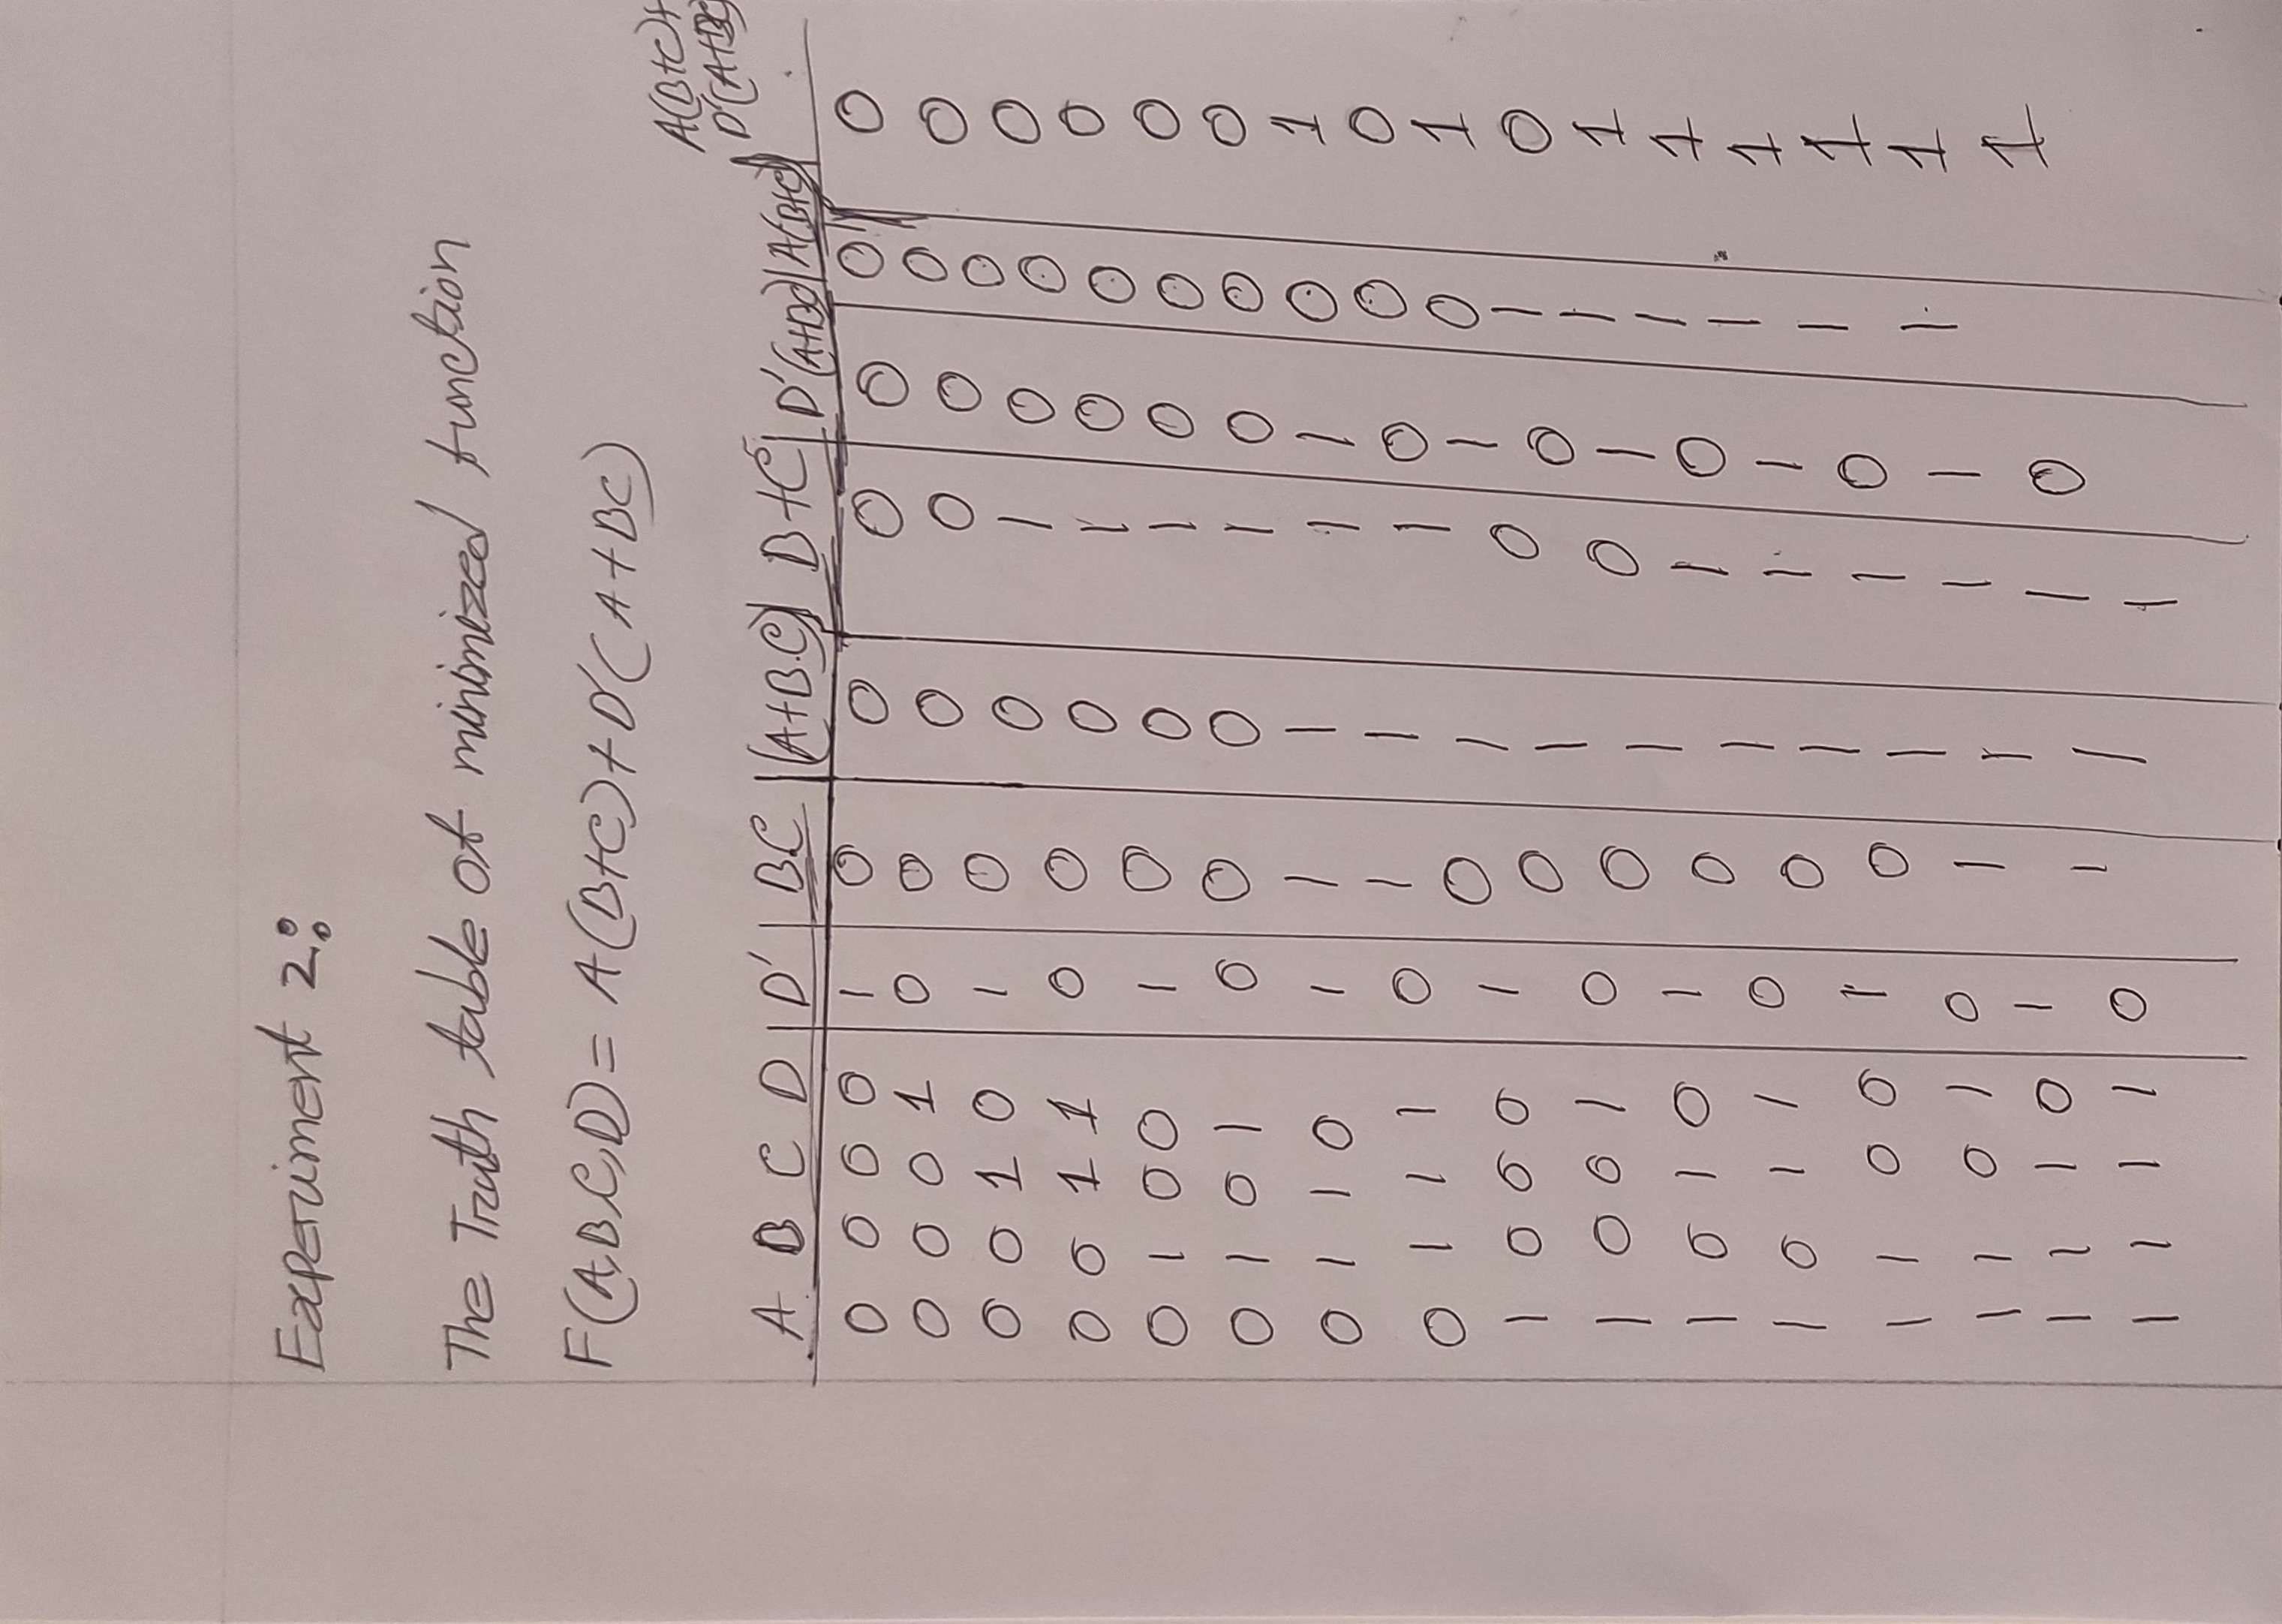 Experiment 2:
The Truth table of minimized function
F(A,B,C,D) = A(B+C)+D'(A+BC)
A(B+C)+
D'(A+BC)
A B C D D' B.C (A+B.C) B+C D'(A+BC) A(B+C)
0 0 0 0 1 0 0 0 0 0 0
0 0 0 1 0 0 0 0 0 0 0
0 0 1 0 1 0 0 1 0 0 0
0 0 1 1 0 0 0 1 0 0 0
0 1 0 0 1 0 0 1 0 0 0
0 1 0 1 0 0 0 1 0 0 0
0 1 1 0 1 1 1 1 1 0 1
0 1 1 1 0 1 1 1 0 0 0
1 0 0 0 1 0 1 0 1 0 1
1 0 0 1 0 0 1 0 0 0 0
1 0 1 0 1 0 1 1 1 1 1
1 0 1 1 0 0 1 1 0 1 1
1 1 0 0 1 0 1 1 1 1 1
1 1 0 1 0 0 1 1 0 1 1
1 1 1 0 1 1 1 1 1 1 1
1 1 1 1 0 1 1 1 0 1 1